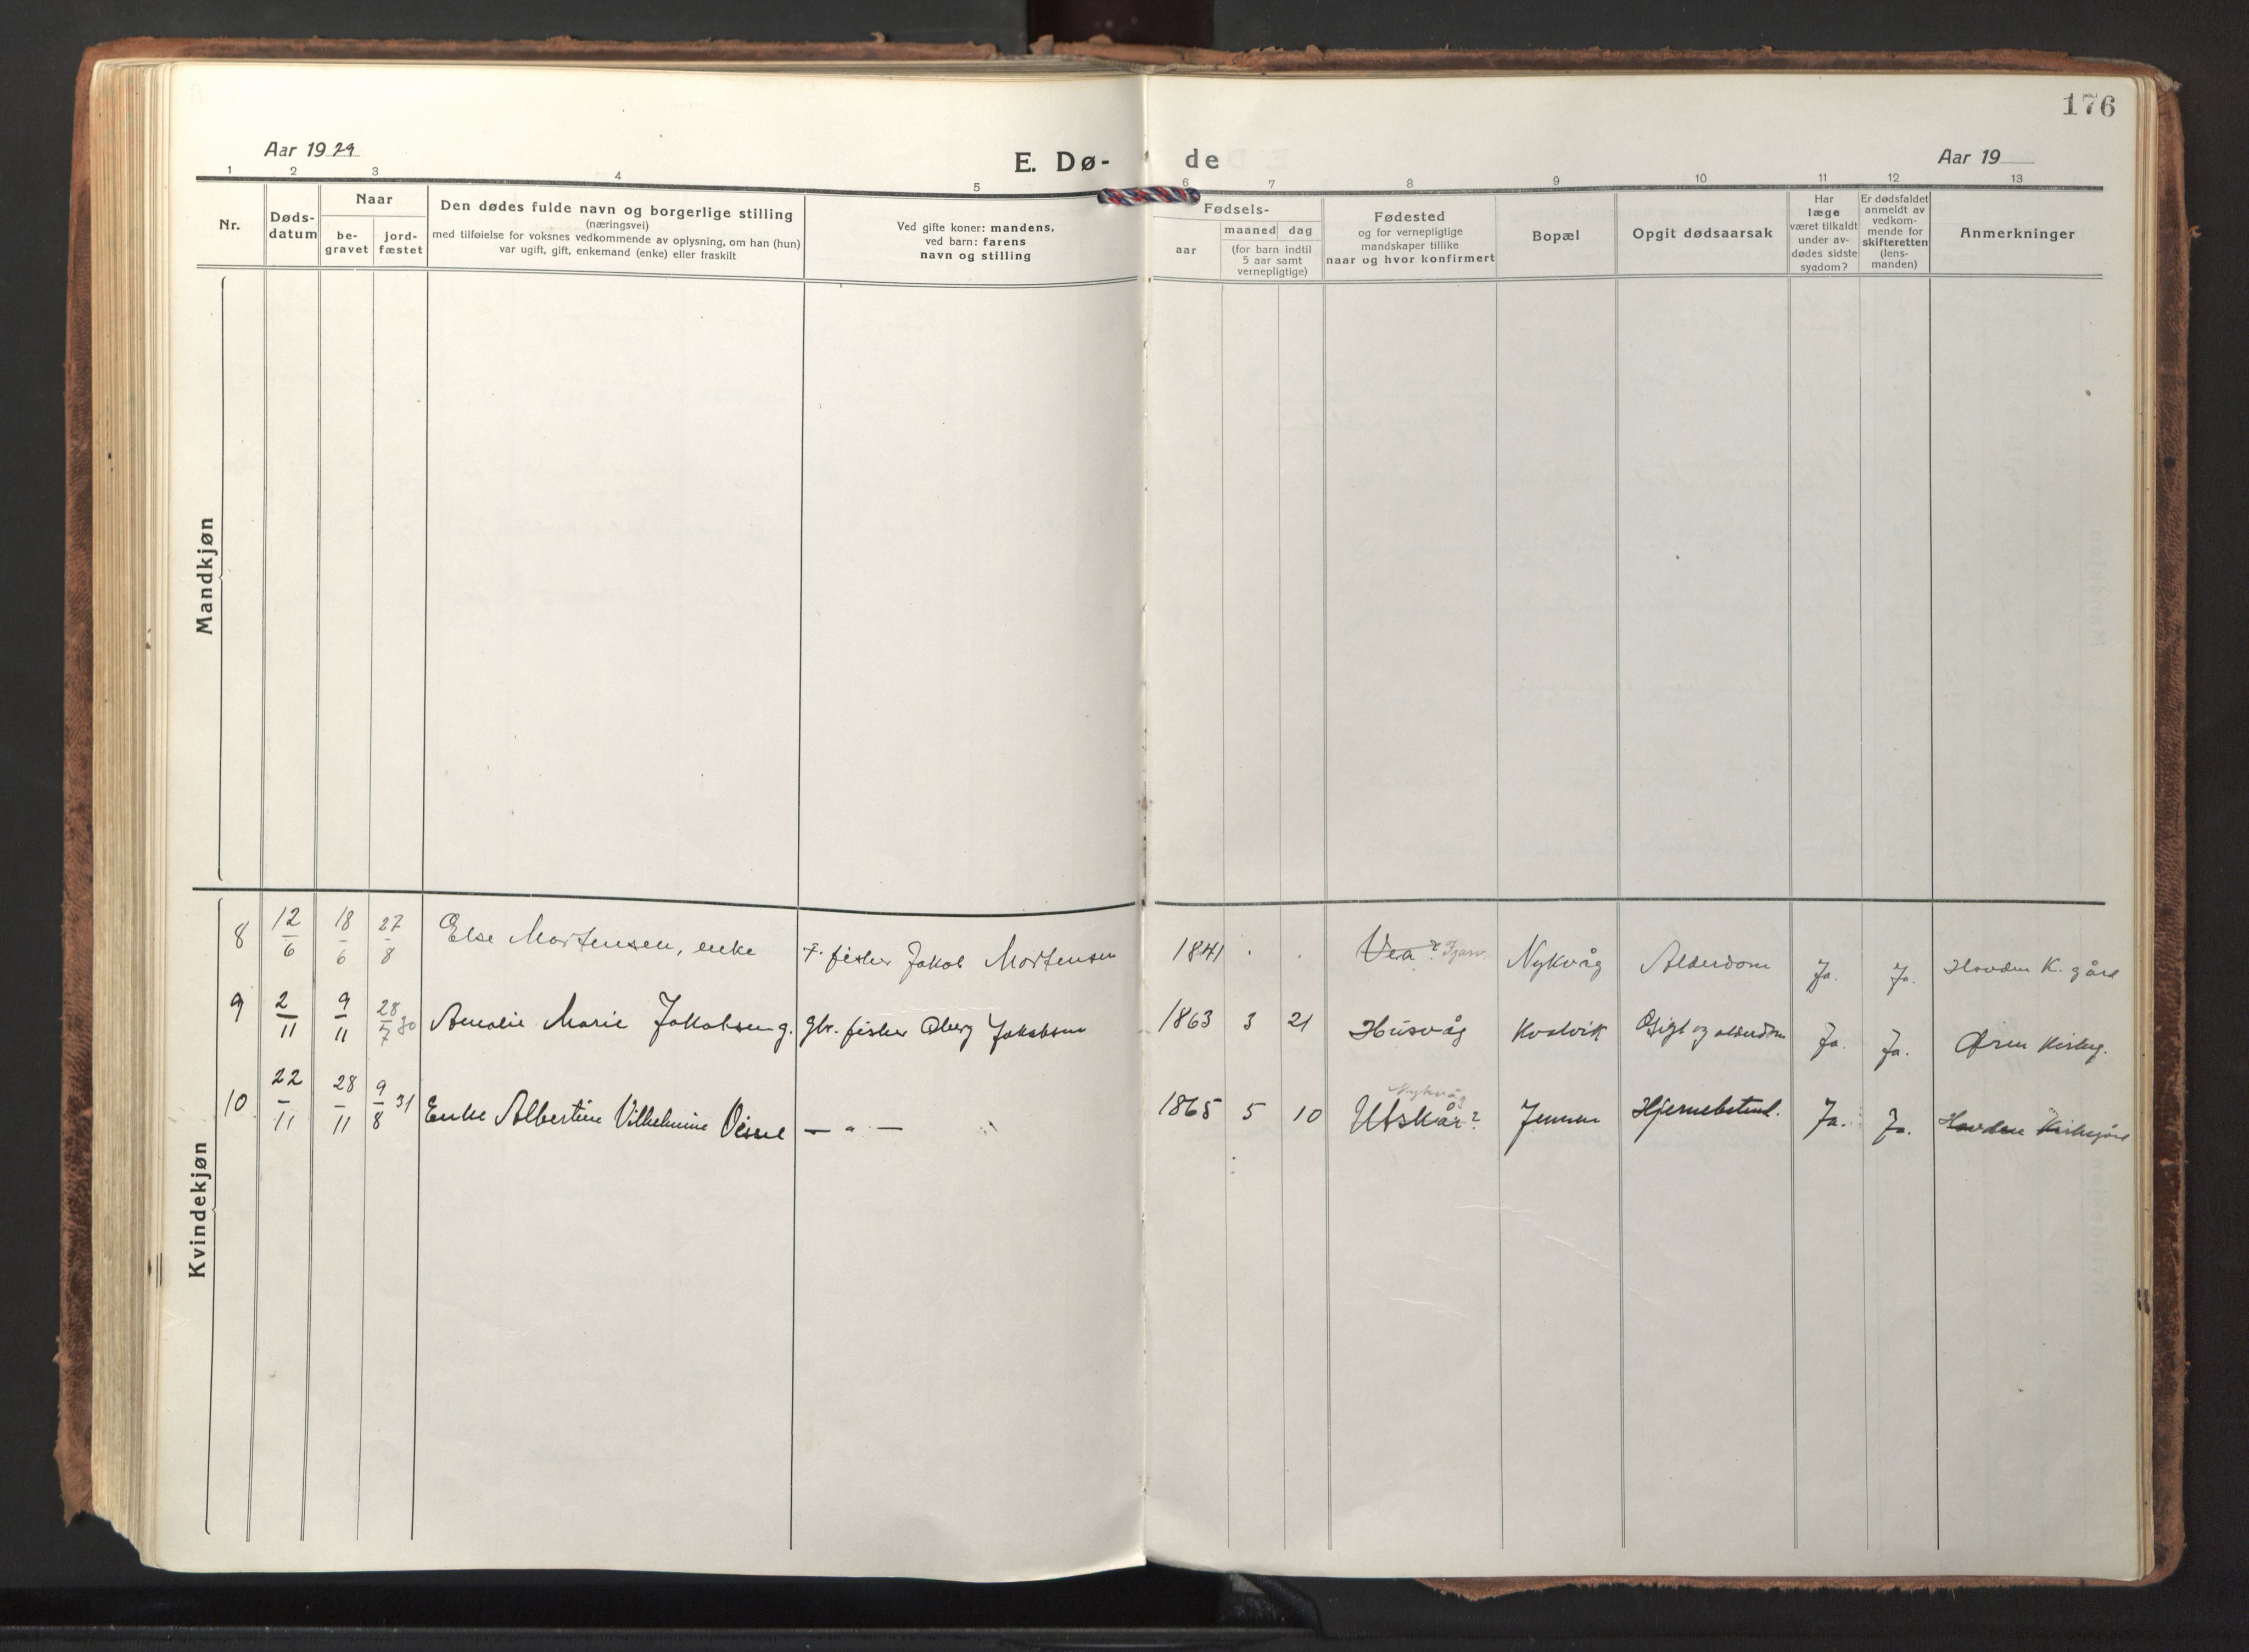 176
Aar 1929
E. Dø-
de
Aar 19
1 2 3 4 5 6 7 8 9 10 11 12 13
Nr.
Døds-
datum
Naar
be-
gravet
jord-
fæstet
Den dødes fulde navn og borgerlige stilling
(næringsvei)
med tilføielse for voksnes vedkommende av oplysning, om han (hun)
var ugift, gift, enkemand (enke) eller fraskilt
Ved gifte koner: mandens,
ved barn: farens
navn og stilling
Fødsels-
aar
maaned dag
(for barn indtil
5 aar samt
vernepligtige)
Fødested
og for vernepligtige
mandskaper tillike
naar og hvor konfirmert
Bopæl
Opgit dødsaarsak
Har
læge
været tilkaldt
under av-
dødes sidste
sygdom?
Er dødsfaldet
anmeldt av
vedkom-
mende for
skifteretten
(lens-
manden)
Anmerkninger
Mandkjøn
Kvindekjøn
8 12/6 18/6 27/8 Else Mortensen, enke f. fisker Jakob Mortensen 1841 Vea ? Nykvåg Alderdom Ja. Ja. Hovden K. gård
9 2/11 9/11 28/7 30 Amalie Marie Jakobsen g. gbr. fisker Oberg Jakobsen 1863 3 21 Husvåg Kvalvik og alderdom Ja. Ja. Øren Kirkeg.
Nykvåg
10 22/11 28/11 9/8 31 Enke Albertine Vilhelmine — " — 1865 5 10 Utskår? Jennen Ja. Ja. Hovden Kirkegård